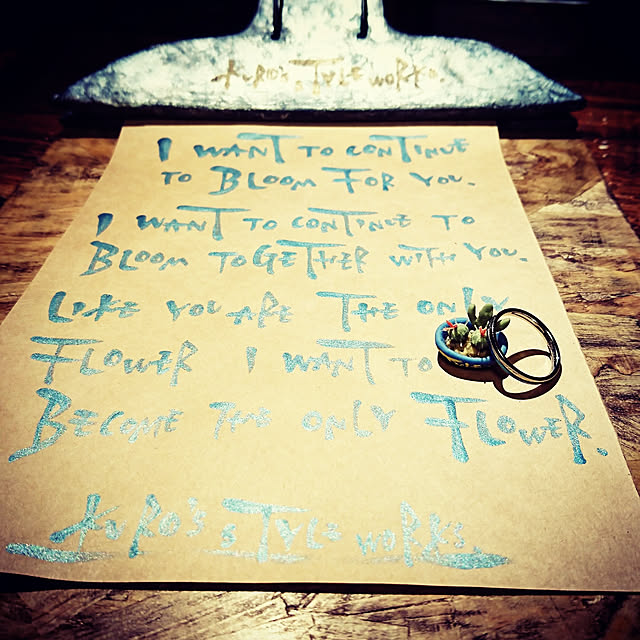 KURO'S STYLE WORKS.
I WANT TO CONTINUE
TO BLOOM FOR YOU.
I WANT TO CONTINUE TO
BLOOM TOGETHER WITH YOU.
LIKE YOU ARE THE ONLY
FLOWER I WANT TO
BECOME THE ONLY FLOWER.
KURO'S STYLE WORKS.